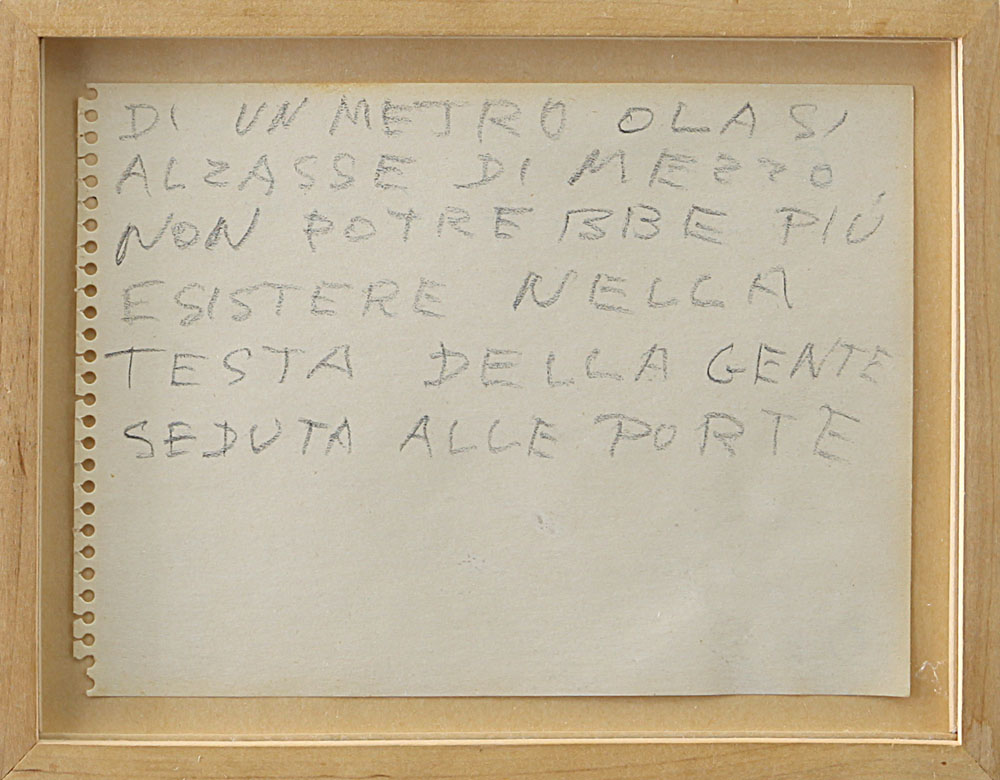 DI UN METRO O LA SI
ALZASSE DI MEZZO
NON POTREBBE PIÚ
ESISTERE NELLA
TESTA DELLA GENTE
SEDUTA ALLE PORTE